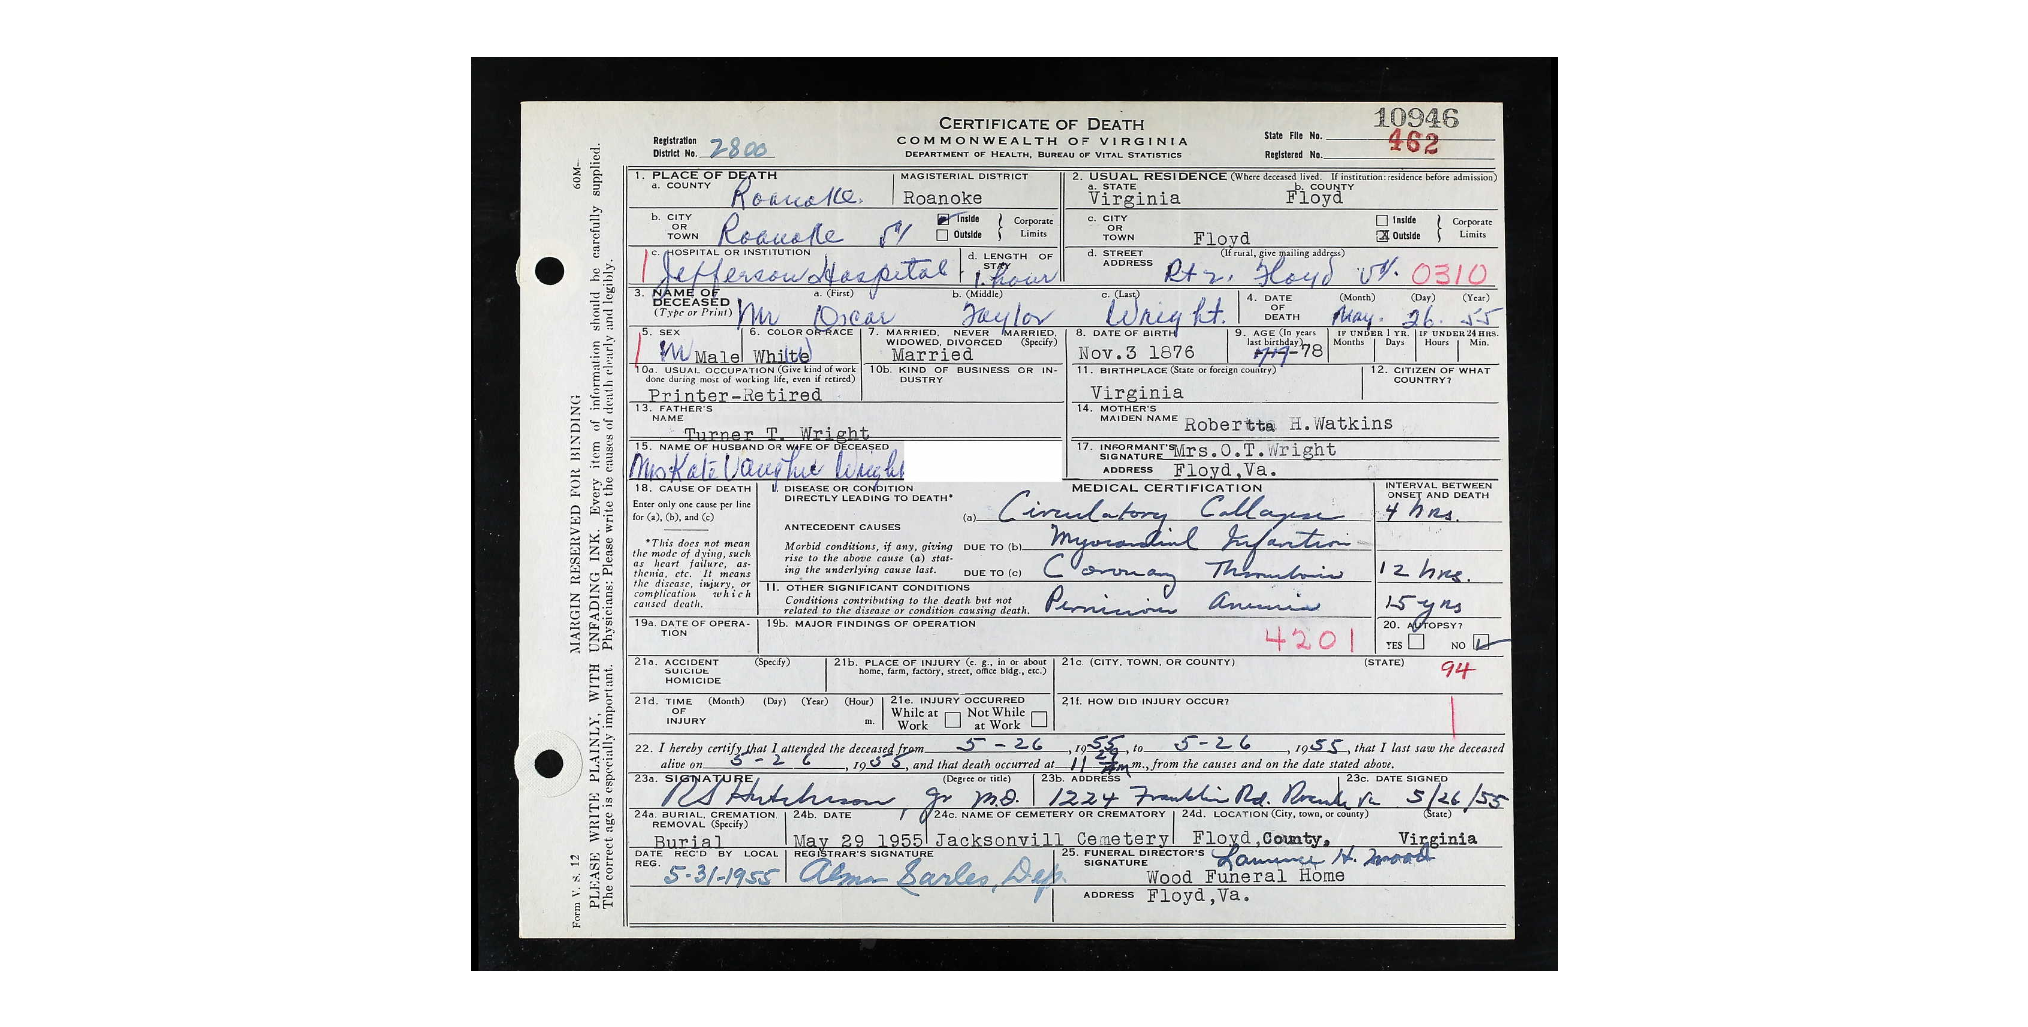 10946
CERTIFICATE OF DEATH
COMMONWEALTH OF VIRGINIA
DEPARTMENT OF HEALTH, BUREAU OF VITAL STATISTICS
Registration District No. 2800
State File No.
Registered No. 462
1. PLACE OF DEATH
a. COUNTY Roanoke.
MAGISTERIAL DISTRICT
Roanoke
2. USUAL RESIDENCE (Where deceased lived. If institution: residence before admission)
a. STATE Virginia
b. COUNTY Floyd
b. CITY OR TOWN Roanoke Va
Inside
Outside
Corporate Limits
c. CITY OR TOWN Floyd
Inside
Outside
Corporate Limits
c. HOSPITAL OR INSTITUTION
Jefferson Hospital
d. LENGTH OF STAY
1 hour
d. STREET ADDRESS (If rural, give mailing address)
Rt 2, Floyd Va. 0310
3. NAME OF DECEASED (Type or Print)
a. (First) b. (Middle) c. (Last)
Mr Oscar Taylor Wright.
4. DATE OF DEATH (Month) (Day) (Year)
May. 26. 55
5. SEX
M Male
6. COLOR OR RACE
White
7. MARRIED, NEVER MARRIED, WIDOWED, DIVORCED (Specify)
Married
8. DATE OF BIRTH
Nov.3 1876
9. AGE (In years last birthday)
78
IF UNDER 1 YR. Months Days
IF UNDER 24 HRS. Hours Min.
10a. USUAL OCCUPATION (Give kind of work done during most of working life, even if retired)
Printer-Retired
10b. KIND OF BUSINESS OR INDUSTRY
11. BIRTHPLACE (State or foreign country)
Virginia
12. CITIZEN OF WHAT COUNTRY?
13. FATHER'S NAME
Turner T. Wright
14. MOTHER'S MAIDEN NAME Robertta H.Watkins
15. NAME OF HUSBAND OR WIFE OF DECEASED
Mrs Kate Vaughn Wright
17. INFORMANT'S SIGNATURE Mrs.O.T.Wright
ADDRESS Floyd,Va.
18. CAUSE OF DEATH
Enter only one cause per line for (a), (b), and (c)
*This does not mean the mode of dying, such as heart failure, asthenia, etc. It means the disease, injury, or complication which caused death.
MEDICAL CERTIFICATION
INTERVAL BETWEEN ONSET AND DEATH
I. DISEASE OR CONDITION DIRECTLY LEADING TO DEATH*
(a) Circulatory Collapse 4 hrs.
ANTECEDENT CAUSES
Morbid conditions, if any, giving rise to the above cause (a) stating the underlying cause last.
DUE TO (b) Myocardial Infarction
DUE TO (c) Coronary Thrombosis 12 hrs.
II. OTHER SIGNIFICANT CONDITIONS
Conditions contributing to the death but not related to the disease or condition causing death.
Pernicious anemia 15 yrs
19a. DATE OF OPERATION
19b. MAJOR FINDINGS OF OPERATION
4201
20. AUTOPSY?
YES NO
21a. ACCIDENT SUICIDE HOMICIDE (Specify)
21b. PLACE OF INJURY (e. g., in or about home, farm, factory, street, office bldg., etc.)
21c. (CITY, TOWN, OR COUNTY) (STATE)
94
21d. TIME OF INJURY (Month) (Day) (Year) (Hour) m.
21e. INJURY OCCURRED
While at Work Not While at Work
21f. HOW DID INJURY OCCUR?
22. I hereby certify that I attended the deceased from 5-26, 1955, to 5-26, 1955, that I last saw the deceased
alive on 5-26, 1955, and that death occurred at 11 29 Am m., from the causes and on the date stated above.
23a. SIGNATURE (Degree or title)
RS Hutcheson, Jr M.D.
23b. ADDRESS
1224 Franklin Rd. Roanoke Va
23c. DATE SIGNED
5/26/55
24a. BURIAL, CREMATION, REMOVAL (Specify)
Burial
24b. DATE
May 29 1955
24c. NAME OF CEMETERY OR CREMATORY
Jacksonvill Cemetery
24d. LOCATION (City, town, or county) (State)
Floyd,County, Virginia
DATE REC'D BY LOCAL REG.
5-31-1955
REGISTRAR'S SIGNATURE
Alma Earles, Dep
25. FUNERAL DIRECTOR'S SIGNATURE Lawrence H. Wood
Wood Funeral Home
ADDRESS Floyd,Va.
Form V. S. 12
60M-
MARGIN RESERVED FOR BINDING
PLEASE WRITE PLAINLY, WITH UNFADING INK. Every item of information should be carefully supplied.
The correct age is especially important. Physicians: Please write the causes of death clearly and legibly.